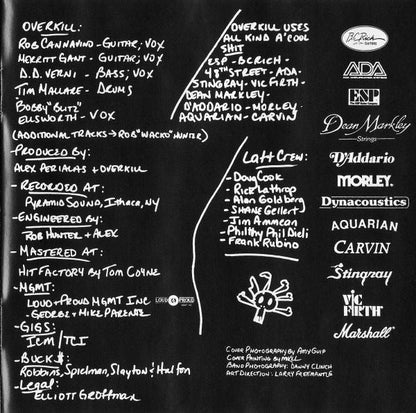 OVERKILL:
ROB CANNAVINO - GUITAR, VOX
MERRITT GANT - GUITAR, VOX
D.D. VERNI - BASS, VOX
TIM MALLARE - DRUMS
BOBBY "BLITZ"
ELLSWORTH - VOX
(ADDITIONAL TRACKS → ROB "WACKO" HUNTER)
- PRODUCED BY:
ALEX PERIALAS + OVERKILL
- RECORDED AT:
PYRAMID SOUND, ITHACA, NY
- ENGINEERED BY:
ROB HUNTER + ALEX
- MASTERED AT:
HIT FACTORY BY TOM COYNE
- MGMT:
LOUD + PROUD MGMT INC
- GEORGE + MIKE PARENTE
LOUD & PROUD
- GIGS:
ICM / TCI
- BUCK$:
Robbins, Spielman, Slayton & Halfon
- Legal:
ELLIOTT GROFFMAN
OVERKILL USES
ALL KIND A' COOL
SHIT
ESP - BC RICH -
48TH STREET - ADA -
STINGRAY - VIC FIRTH -
DEAN MARKLEY -
D'ADDARIO - MORLEY -
AQUARIAN - CARVIN
Laff Crew:
- Doug Cook
- Rick Lathrop
- Alan Goldberg
- SHANE Geilert
- Jim Ammean
- Philthy Phil Dieli
- Frank Rubino
COVER PHOTOGRAPHY BY AMY GUIP
COVER PAINTING BY
BAND PHOTOGRAPHY: DANNY CLINCH
ART DIRECTION: LARRY FREMANTLE
B.C. Rich
ADA
ESP
Dean Markley
Strings
D'Addario
MORLEY
Dynacoustics
AQUARIAN
CARVIN
Stingray
VIC
FIRTH
Marshall